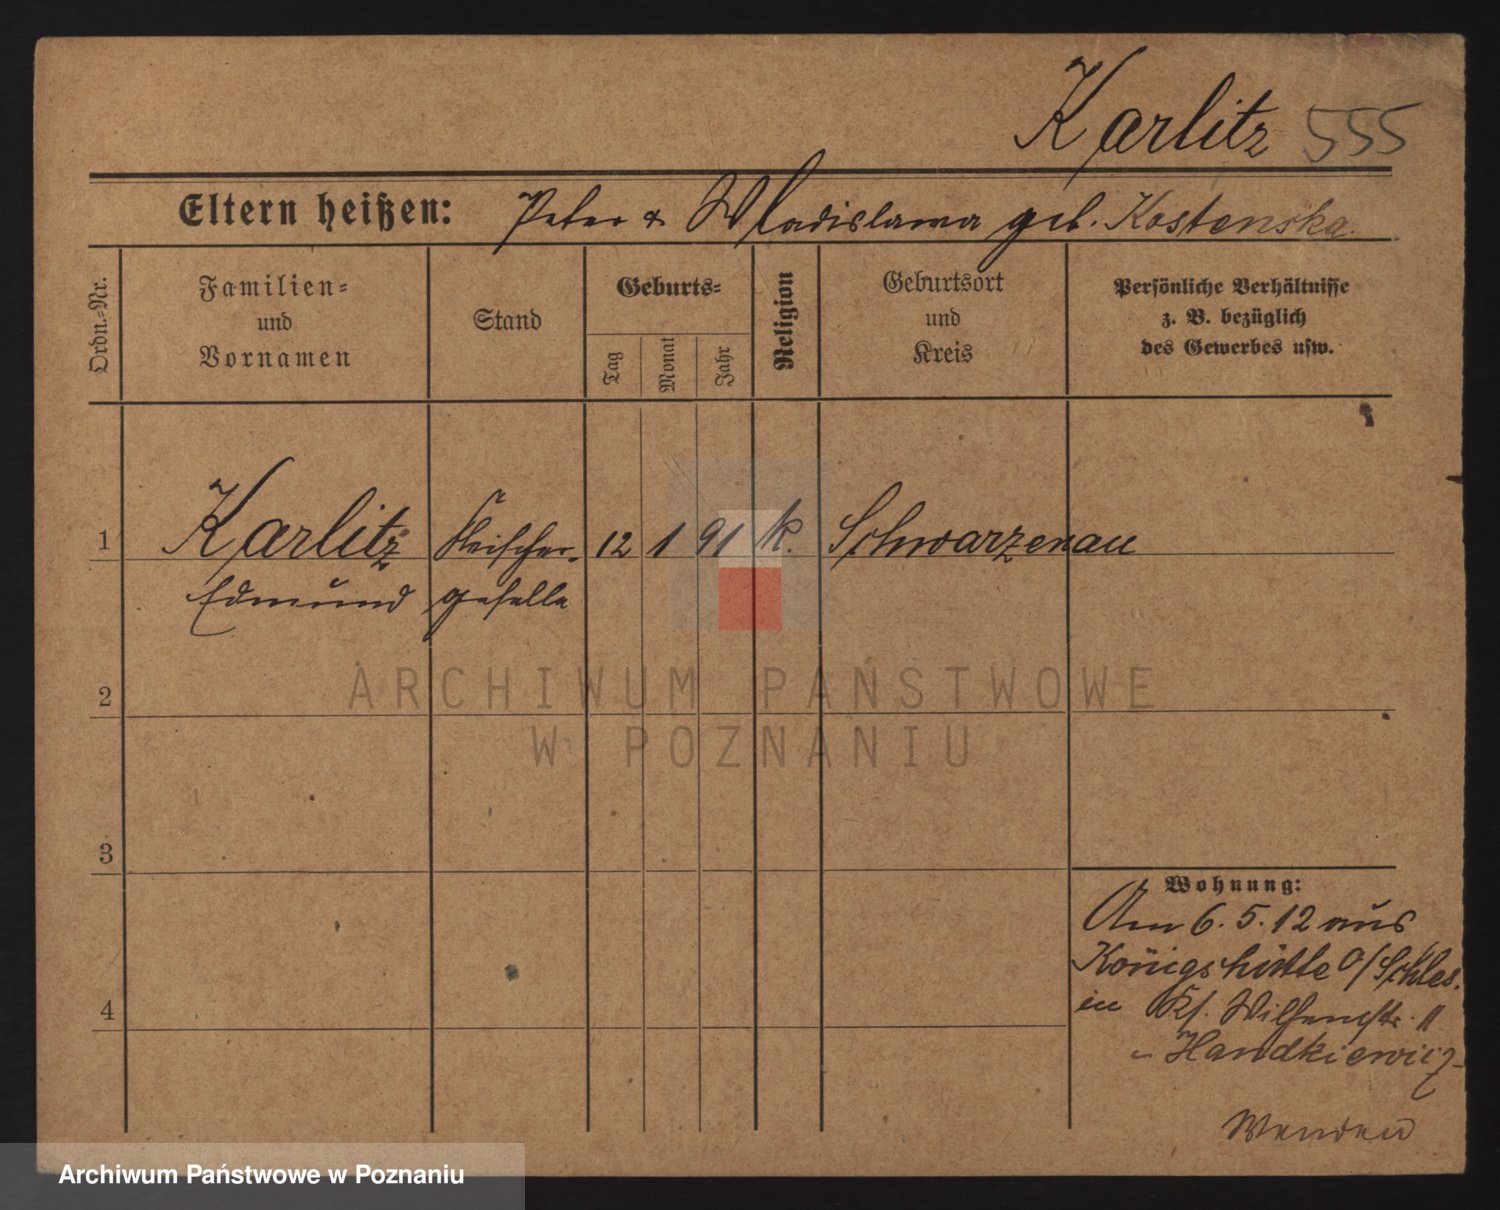 Karlitz 555
Eltern heißen: Peter & Wladislawa geb. Kostenska.
Ordn.-Nr.
Familien-
und
Vornamen
Stand
Geburts-
Tag
Monat
Jahr
Religion
Geburtsort
und
Kreis
Persönliche Verhältnisse
z. B. bezüglich
des Gewerbes usw.
1 Karlitz Fleischer- 12 1 91 k. Schwarzenau
Edmund geselle
2
3
4
Wohnung:
Am 6.5.12 aus
Königshütte O/Schles.
in Kl. 11
Handkiewicz
Wenden
ARCHIWUM PAŃSTWOWE
W POZNANIU
Archiwum Państwowe w Poznaniu